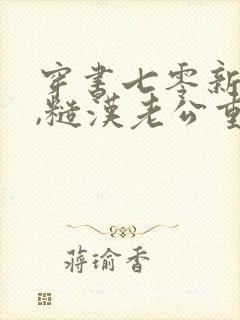 穿书七零新
,糙漢老公重
蔣瑜香